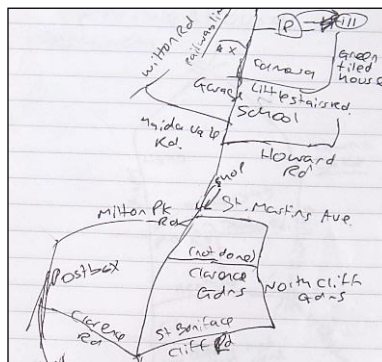 Wilton Rd
railway line
4 x
P
111
Green
tiled
house
Garage
Littlestairs Rd.
School
Maida Vale
Rd.
Howard
Rd
St. Martins Ave.
Milton Pk
Rd
(not done)
Clarence
Gdns
North Cliff
Gdns
Postbox
Clarence
Rd
St Boniface
Cliff Rd